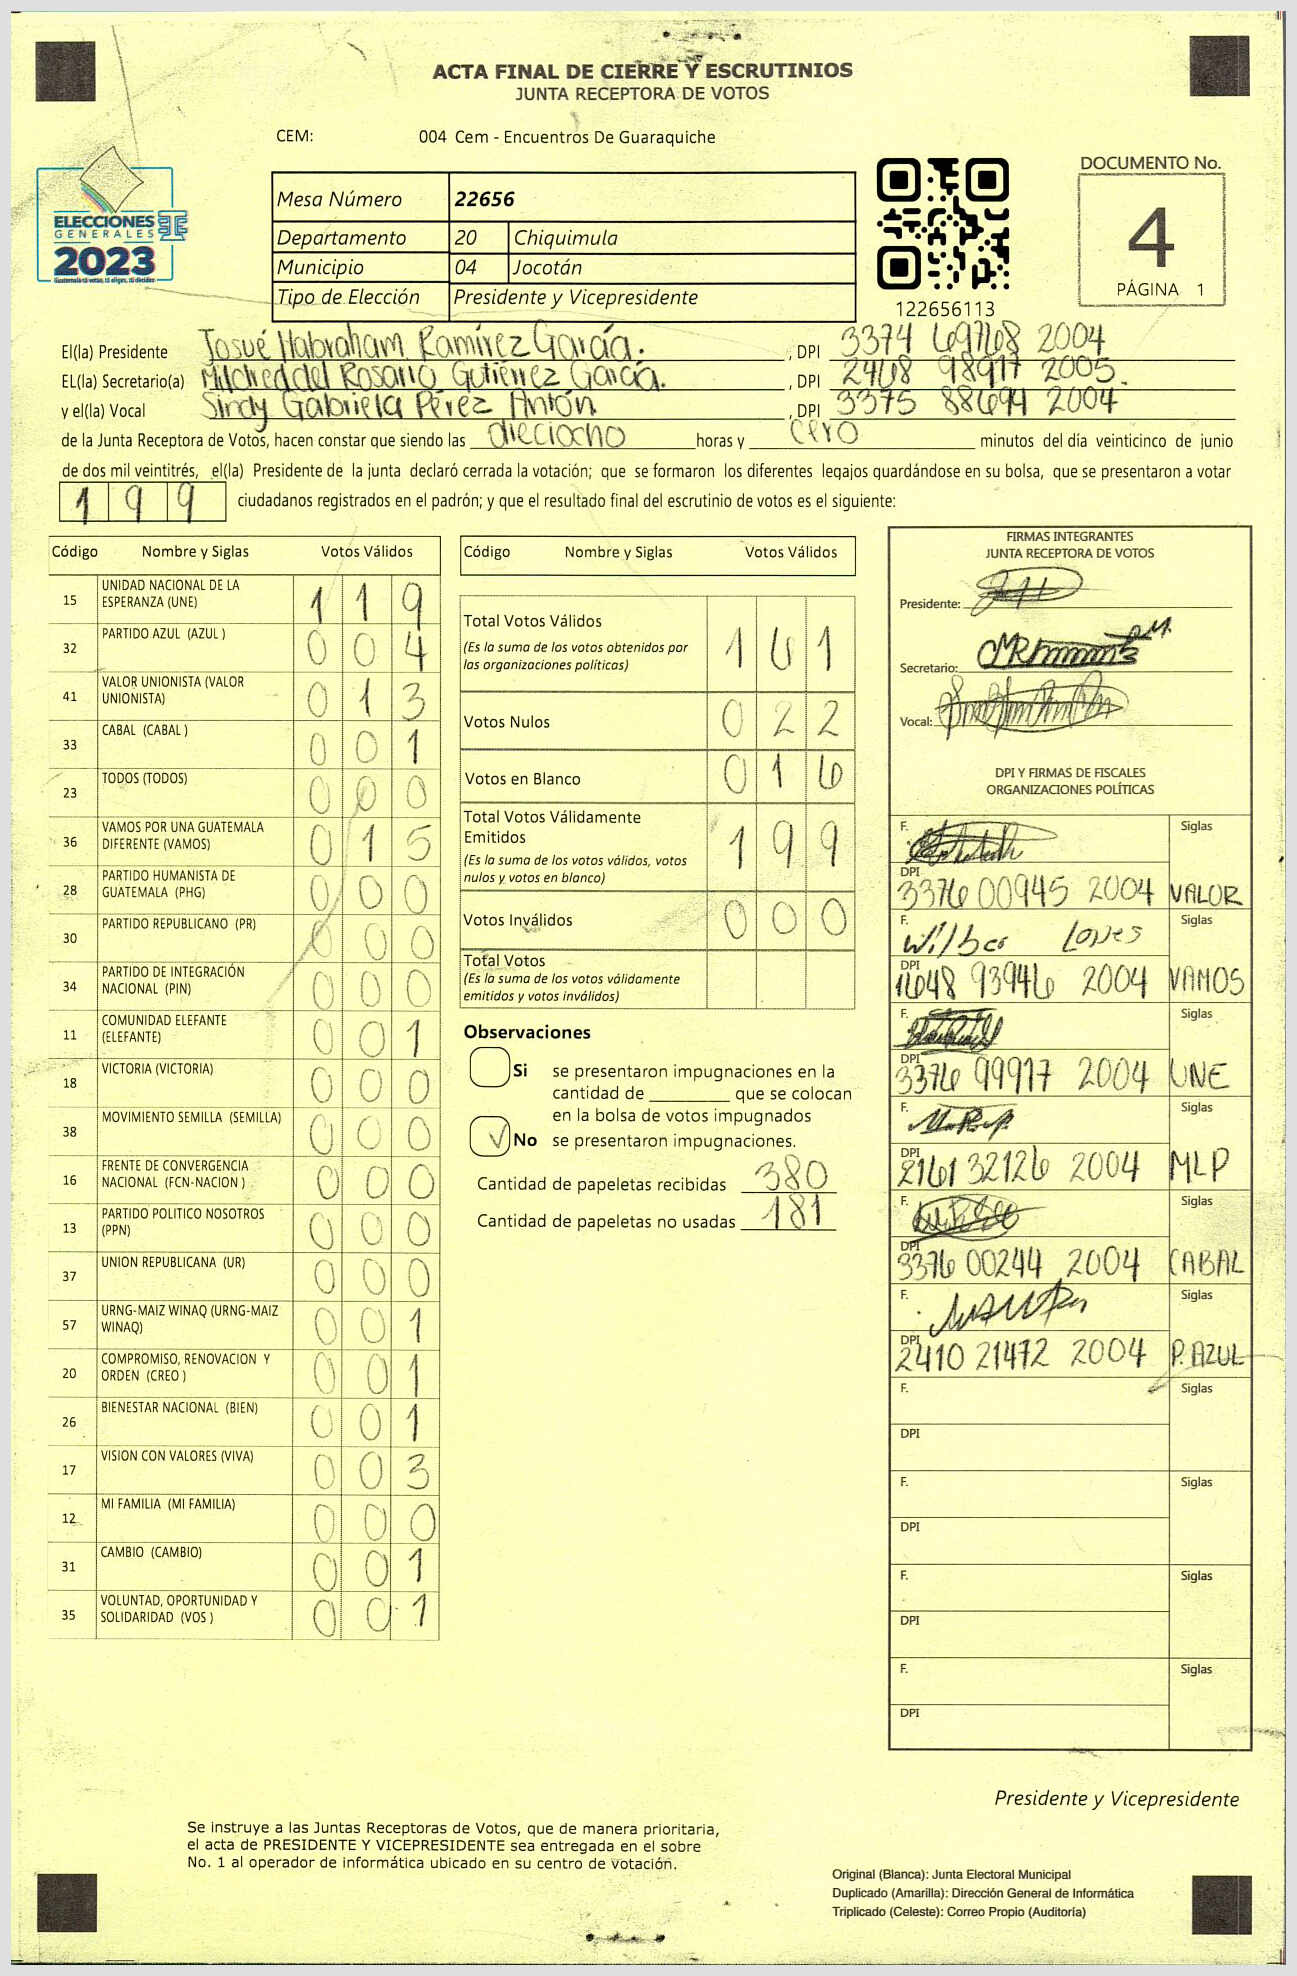 ACTA FINAL DE CIERRE Y ESCRUTINIOS
JUNTA RECEPTORA DE VOTOS
CEM: 004 Cem - Encuentros De Guaraquiche
ELECCIONES
GENERALES
2023
Guatemala tú votas, tú eliges, tú decides
Mesa Número 22656
Departamento 20 Chiquimula
Municipio 04 Jocotán
Tipo de Elección Presidente y Vicepresidente
122656113
DOCUMENTO No.
4
PÁGINA 1
El(la) Presidente Josué Habraham Ramírez García. , DPI 3374 69768 2004
EL(la) Secretario(a) Mildred del Rosario Gutiérrez García. , DPI 2468 98917 2005.
y el(la) Vocal Sindy Gabriela Pérez Antón , DPI 3375 88694 2004
de la Junta Receptora de Votos, hacen constar que siendo las dieciocho horas y cero minutos del día veinticinco de junio
de dos mil veintitrés, el(la) Presidente de la junta declaró cerrada la votación; que se formaron los diferentes legajos guardándose en su bolsa, que se presentaron a votar
199 ciudadanos registrados en el padrón; y que el resultado final del escrutinio de votos es el siguiente:
Código Nombre y Siglas Votos Válidos
15 UNIDAD NACIONAL DE LA
ESPERANZA (UNE) 1 1 9
32 PARTIDO AZUL (AZUL ) 0 0 4
41 VALOR UNIONISTA (VALOR
UNIONISTA) 0 1 3
33 CABAL (CABAL ) 0 0 1
23 TODOS (TODOS) 0 0 0
36 VAMOS POR UNA GUATEMALA
DIFERENTE (VAMOS) 0 1 5
28 PARTIDO HUMANISTA DE
GUATEMALA (PHG) 0 0 0
30 PARTIDO REPUBLICANO (PR) 0 0 0
34 PARTIDO DE INTEGRACIÓN
NACIONAL (PIN) 0 0 0
11 COMUNIDAD ELEFANTE
(ELEFANTE) 0 0 1
18 VICTORIA (VICTORIA) 0 0 0
38 MOVIMIENTO SEMILLA (SEMILLA) 0 0 0
16 FRENTE DE CONVERGENCIA
NACIONAL (FCN-NACION ) 0 0 0
13 PARTIDO POLITICO NOSOTROS
(PPN) 0 0 0
37 UNION REPUBLICANA (UR) 0 0 0
57 URNG-MAIZ WINAQ (URNG-MAIZ
WINAQ) 0 0 1
20 COMPROMISO, RENOVACION Y
ORDEN (CREO ) 0 0 1
26 BIENESTAR NACIONAL (BIEN) 0 0 1
17 VISION CON VALORES (VIVA) 0 0 3
12 MI FAMILIA (MI FAMILIA) 0 0 0
31 CAMBIO (CAMBIO) 0 0 1
35 VOLUNTAD, OPORTUNIDAD Y
SOLIDARIDAD (VOS ) 0 0 1
Código Nombre y Siglas Votos Válidos
Total Votos Válidos 1 6 1
(Es la suma de los votos obtenidos por
las organizaciones políticas)
Votos Nulos 0 2 2
Votos en Blanco 0 1 6
Total Votos Válidamente
Emitidos 1 9 9
(Es la suma de los votos válidos, votos
nulos y votos en blanco)
Votos Inválidos 0 0 0
Total Votos
(Es la suma de los votos válidamente
emitidos y votos inválidos)
Observaciones
Si se presentaron impugnaciones en la
cantidad de ________ que se colocan
en la bolsa de votos impugnados
No se presentaron impugnaciones.
Cantidad de papeletas recibidas 380
Cantidad de papeletas no usadas 181
FIRMAS INTEGRANTES
JUNTA RECEPTORA DE VOTOS
Presidente:
Secretario:
Vocal:
DPI Y FIRMAS DE FISCALES
ORGANIZACIONES POLÍTICAS
F. Siglas
DPI
3376 00945 2004 VALOR
F. Wilber Lopes Siglas
DPI
1648 93946 2004 VAMOS
F. Siglas
DPI
3376 99917 2004 UNE
F. Siglas
DPI
2161 32126 2004 MLP
F. Siglas
DPI
3376 00244 2004 CABAL
F. Siglas
DPI
2410 21472 2004 P. AZUL
F. Siglas
DPI
F. Siglas
DPI
F. Siglas
DPI
F. Siglas
DPI
Presidente y Vicepresidente
Se instruye a las Juntas Receptoras de Votos, que de manera prioritaria,
el acta de PRESIDENTE Y VICEPRESIDENTE sea entregada en el sobre
No. 1 al operador de informática ubicado en su centro de votación.
Original (Blanca): Junta Electoral Municipal
Duplicado (Amarilla): Dirección General de Informática
Triplicado (Celeste): Correo Propio (Auditoría)